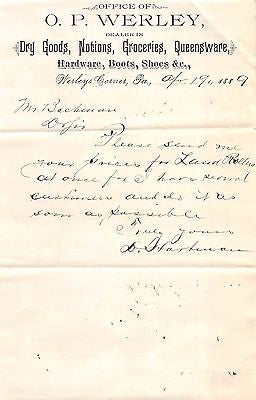 OFFICE OF
O. P. WERLEY,
DEALER IN
Dry Goods, Notions, Groceries, Queensware,
Hardware, Boots, Shoes &c.,
Werleys Corner, Pa., Apr 19 1889
Mr Beckman
Please send me
your Prices for Land Rollers
at once for I have several
customers and do it as
soon as possible
Truly yours
D. Hartman